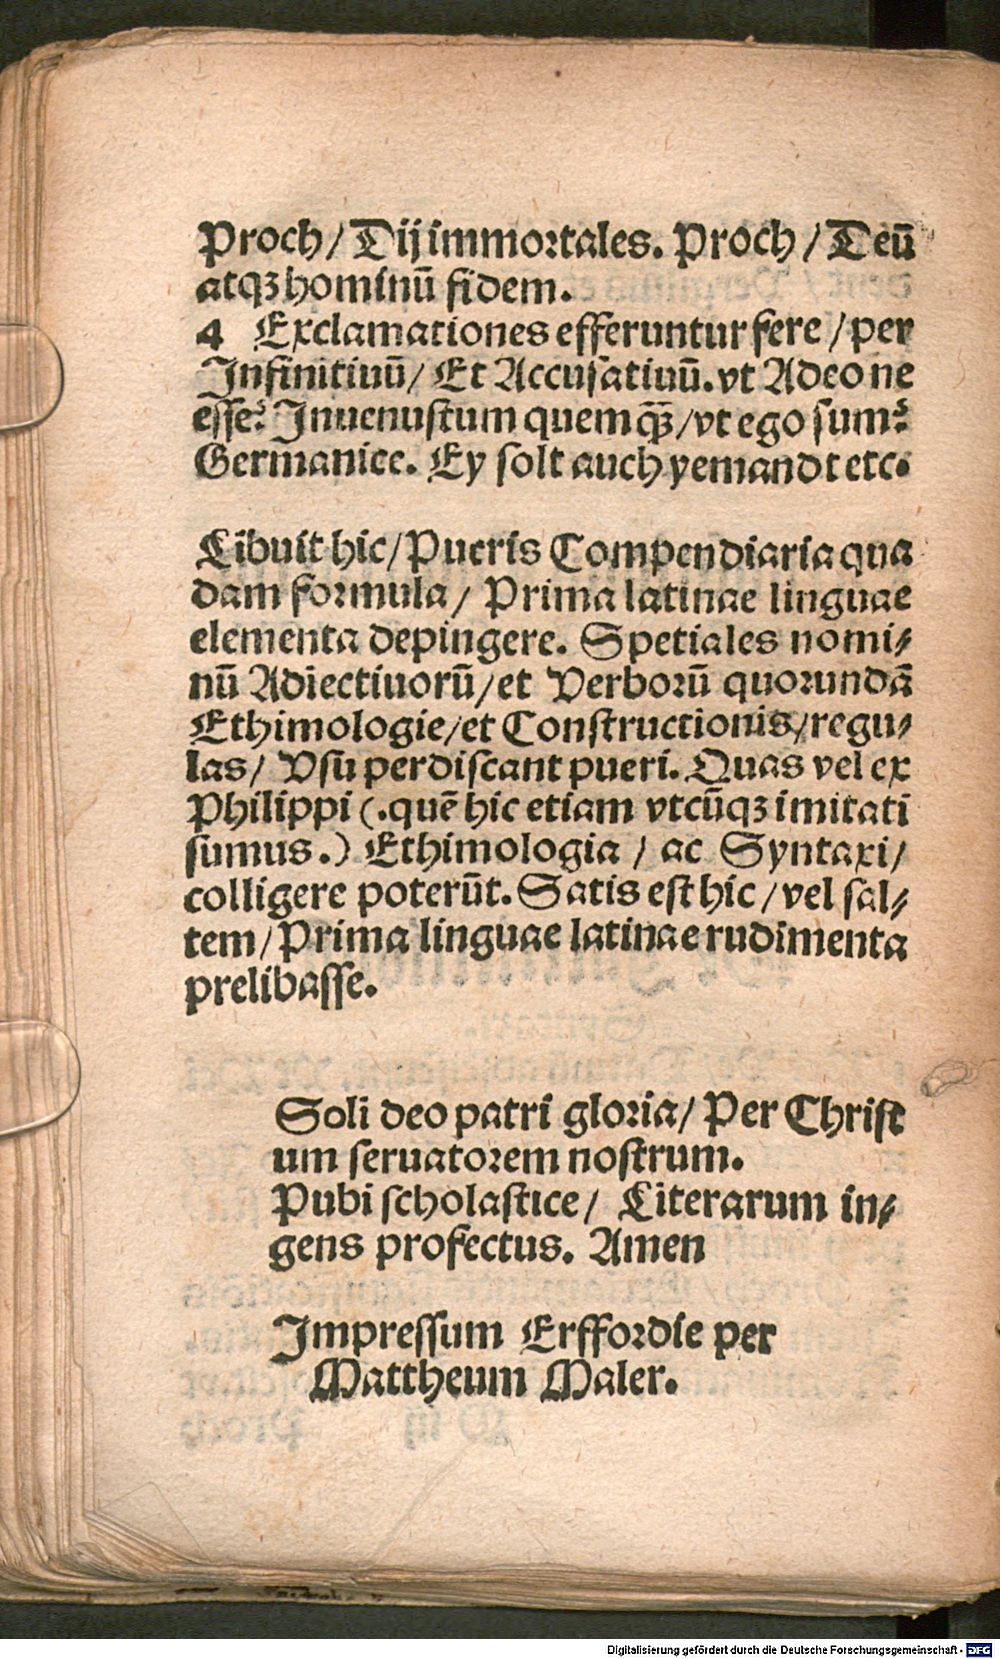 Proch/ Dij immortales. Proch/ Deū
atqꝫ hominū fidem.
4 Exclamationes efferuntur fere/ per
Infinitiuū/ Et Accusatiuū. vt Adeo ne
esse? Inuenustum quemqꝫ̄/ vt ego sum?
Germanice. Ey solt auch yemandt etc.
Libuit hic/ Pueris Compendiaria qua
dam formula/ Prima latinae linguae
elementa depingere. Spetiales nomi⸗
nū Adiectiuorū/ et Verborū quorundā
Ethimologie/ et Constructionis/ regu⸗
las/ Vsū perdiscant pueri. Quas vel ex
Philippi (.quē hic etiam vtcūqꝫ imitati
sumus.) Ethimologia/ ac Syntaxi/
colligere poterūt. Satis est hic/ vel sal⸗
tem/ Prima linguae latinae rudimenta
prelibasse.
Soli deo patri gloria/ Per Christ
um seruatorem nostrum.
Pubi scholastice/ Literarum in⸗
gens profectus. Amen
Impressum Erffordie per
Mattheum Maler.
Digitalisierung gefördert durch die Deutsche Forschungsgemeinschaft - DFG